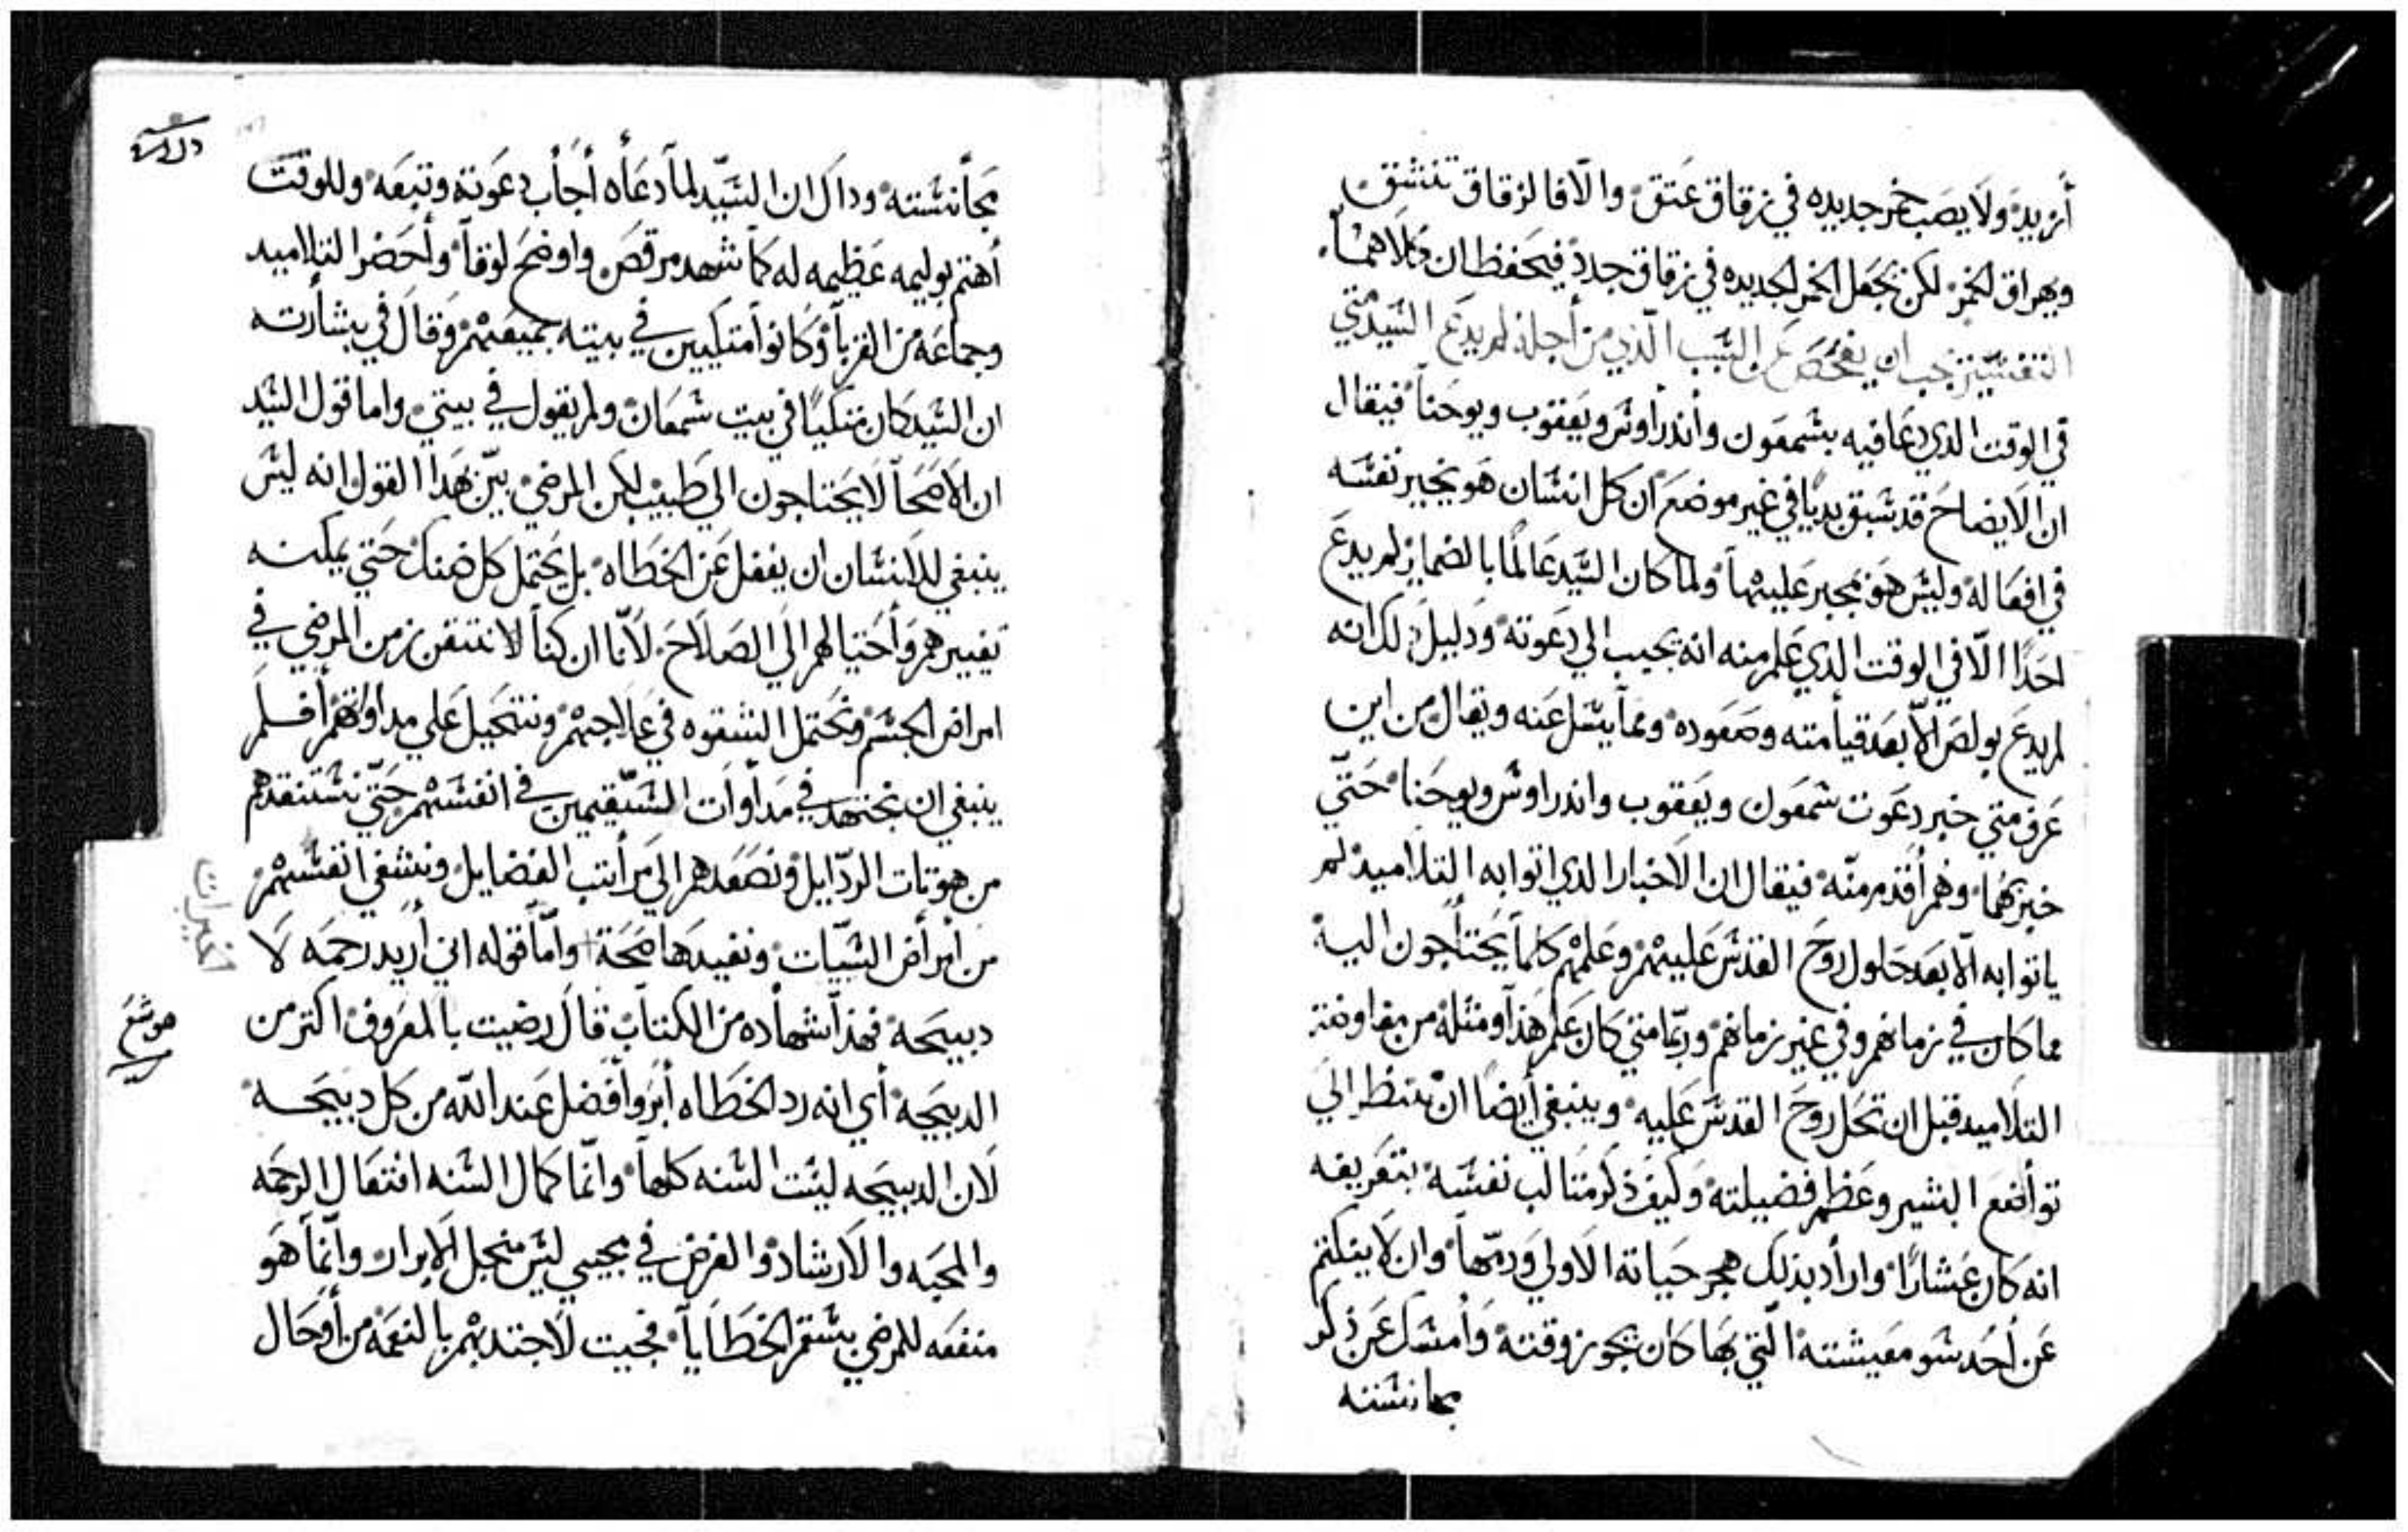 أزيد ولا يصب خمر جديده في زقاق عتق والا فالزقاق تنشق
ويهراق الخمر لكن تجعل الخمر الجديده في زقاق جدد فيحفظان كلاهما
التفسير يجب ان يفحص عن السبب الذي من أجله لم يدع السيد متي
في الوقت الدي دعا فيه بشمعون وأندراوس ويعقوب ويوحنا فيقال
ان الايضاح قد سبق بديا في غير موضع ان كل انسان هو يخير نفسه
في افعاله وليس هو مجبر عليها ولما كان السيد عالما بالضماير لم يدع
احدا الا في الوقت الدي علم منه انه يجيب الي دعوته ودليل دلك انه
لم يدع بولص الا بعد قيامته وصعوده ومما يسل عنه ويقال من اين
عرف متي خبر دعوت شمعون ويعقوب واندراوس ويوحنا حتي
خبر بهما وهم أقدم منه فيقال ان الاخبار الدي اتوا به التلاميد لم
ياتوا به الا بعد حلول روح القدس عليهم وعلمهم كلما يحتاجون اليه
مما كان في زمانهم وفي غير زمانهم وربما متي كان علم هدا ومثله من مفاوضة
التلاميد قبل ان تحل روح القدس عليه وينبغي أيضا ان ننظر الي
تواضع البشير وعظم فضيلته وكيف ذكر مثالب نفسه بتعريفه
انه كان عشارا واراد بذلك هجر حياته الاولي ودمها وان لا ينكتم
عن أحد سو معيشته التي بها كان يجوز وقته وأمسك عن ذكر
مجانسته
مجانسته وداك ان السيد لما دعاه أجاب دعوته وتبعه وللوقت
أهتم بوليمه عظيمه له كما شهد مرقص واوضح لوقا وأحضر التلاميد
وجماعه من القربا وكانوا متكيين في بيته جميعهم وقال في بشارته
ان السيد كان متكيا في بيت شمعان ولم يقول في بيتي واما قول السيد
ان الاصحا لا يحتاجون الي طبيب لكن المرضي بين بهدا القول انه ليس
ينبغي للانسان ان يغفل عن الخطاه بل يحتمل كل ضنك حتي يمكنه
تغييرهم وأحتيالهم الي الصلاح لانا ان كنا لا نتقزز من المرضي في
امراض الجسم ونحتمل الشقوه في علاجهم ونتحيل علي مداواتهم أفلم
ينبغي ان نجتهد في مداوات السقيمين في انفسهم حتي نستنقدهم
من هوتات الردايل ونصعدهم الي مراتب الفضايل ونشفي انفسهم
من أمراض السيات ونفيدها صحة وأما قوله اني أريد رحمه لا
دبيحه فهذا شهاده من الكتاب قال رضيت بالمعروف اكتر من
الدبيحه أي انه رد الخطاه أبر وأفضل عند الله من كل دبيحه
لان الدبيحه ليست السنه كلها وانما كمال السنه افتعال الرحمه
والمحبه والارشاد والغرض في مجيي ليس منجل الابرار وانما هو
منفعه للمرضي بسقم الخطايا فجيت لاجتدبهم بالنعمه من أوحال
هوشع